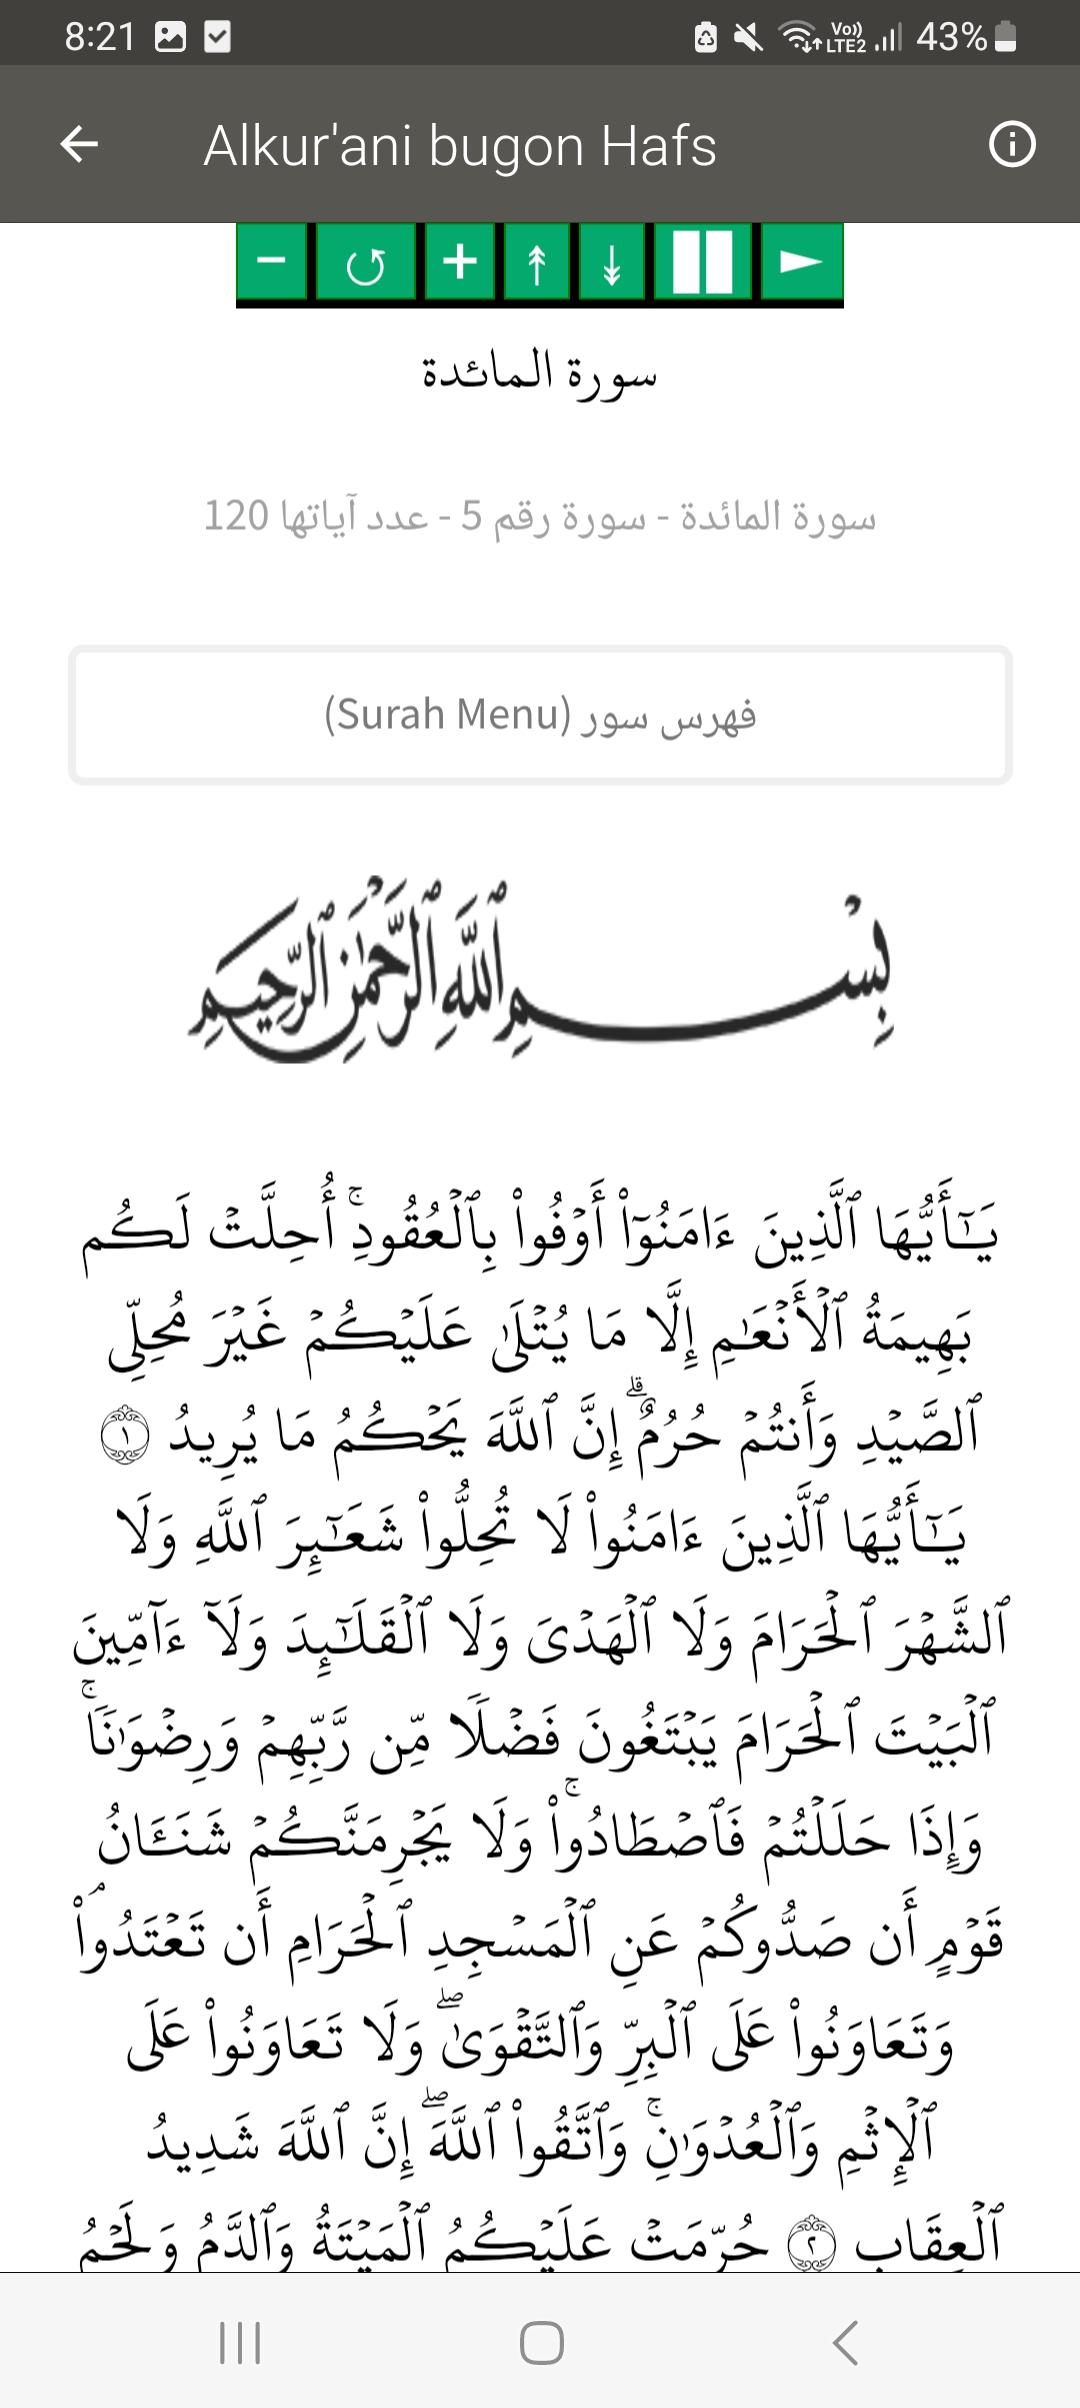 8:21
Vo)) LTE2 43%
Alkur'ani bugon Hafs
سورة المائدة
سورة المائدة - سورة رقم 5 - عدد آياتها 120
فهرس سور (Surah Menu)
بِسْمِ ٱللَّهِ ٱلرَّحْمَٰنِ ٱلرَّحِيمِ
يَـٰٓأَيُّهَا ٱلَّذِينَ ءَامَنُوٓا۟ أَوْفُوا۟ بِٱلْعُقُودِ ۚ أُحِلَّتْ لَكُم
بَهِيمَةُ ٱلْأَنْعَـٰمِ إِلَّا مَا يُتْلَىٰ عَلَيْكُمْ غَيْرَ مُحِلِّى
ٱلصَّيْدِ وَأَنتُمْ حُرُمٌ ۗ إِنَّ ٱللَّهَ يَحْكُمُ مَا يُرِيدُ ١
يَـٰٓأَيُّهَا ٱلَّذِينَ ءَامَنُوا۟ لَا تُحِلُّوا۟ شَعَـٰٓئِرَ ٱللَّهِ وَلَا
ٱلشَّهْرَ ٱلْحَرَامَ وَلَا ٱلْهَدْىَ وَلَا ٱلْقَلَـٰٓئِدَ وَلَآ ءَآمِّينَ
ٱلْبَيْتَ ٱلْحَرَامَ يَبْتَغُونَ فَضْلًا مِّن رَّبِّهِمْ وَرِضْوَٰنًا ۚ
وَإِذَا حَلَلْتُمْ فَٱصْطَادُوا۟ ۚ وَلَا يَجْرِمَنَّكُمْ شَنَـَٔانُ
قَوْمٍ أَن صَدُّوكُمْ عَنِ ٱلْمَسْجِدِ ٱلْحَرَامِ أَن تَعْتَدُوا۟ ۘ
وَتَعَاوَنُوا۟ عَلَى ٱلْبِرِّ وَٱلتَّقْوَىٰ ۖ وَلَا تَعَاوَنُوا۟ عَلَى
ٱلْإِثْمِ وَٱلْعُدْوَٰنِ ۚ وَٱتَّقُوا۟ ٱللَّهَ ۖ إِنَّ ٱللَّهَ شَدِيدُ
ٱلْعِقَابِ ٢ حُرِّمَتْ عَلَيْكُمُ ٱلْمَيْتَةُ وَٱلدَّمُ وَلَحْمُ